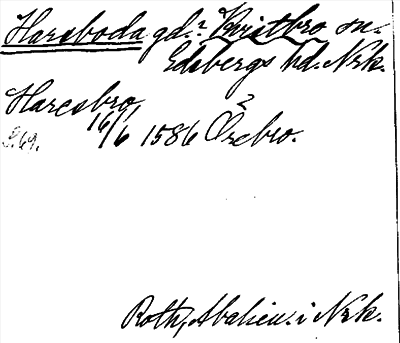 Haraboda gd.? Kvistbro sn.
Edsbergs hd. Nrk.
Harcsbro
16/6 1586 Örebro.
Roth, Abalien. i Nrk.